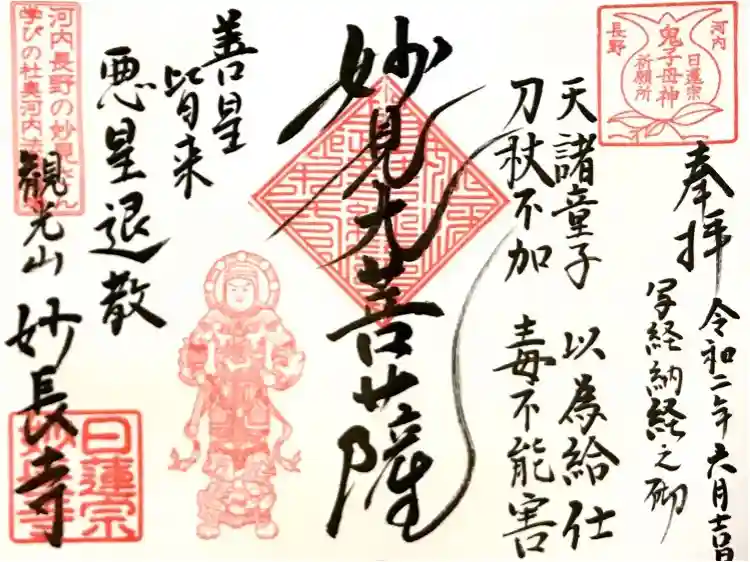 河内
長野
日蓮宗
鬼子母神
祈願所
奉拝
令和二年六月吉日
写経納経之砌
天諸童子 以為給仕
刀杖不加 毒不能害
妙見大菩薩
善星
皆来
悪星退散
河内長野の妙見さん
学びの社奥河内
観光山 妙長寺
日蓮宗
妙長寺